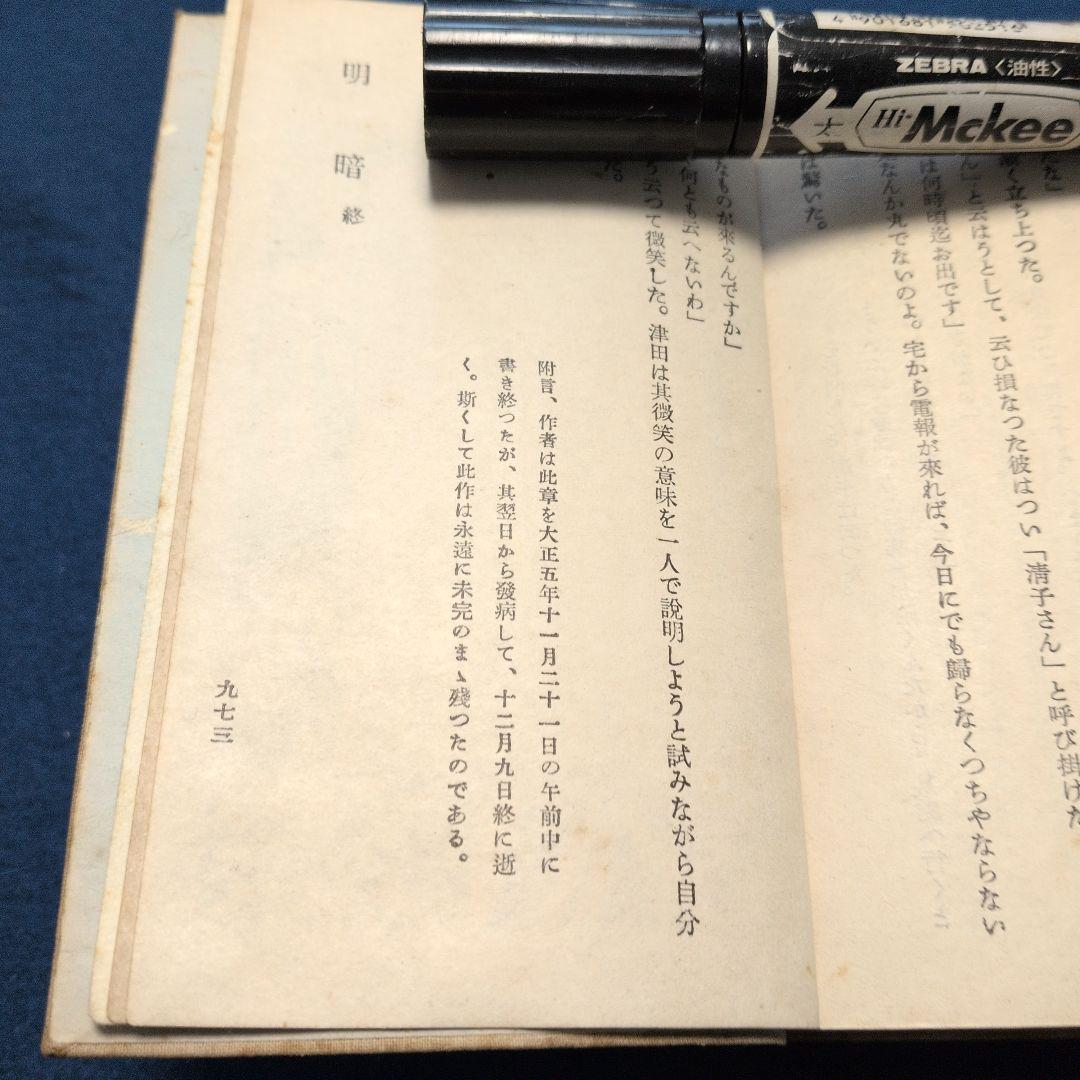 ZEBRA〈油性〉
Hi-Mckee
太
だ」
く立ち上つた。
ん」と云はうとして、云ひ損なつた彼はつい「淸子さん」と呼び掛けた
は何時頃迄お出です」
なんか丸でないのよ。宅から電報が來れば、今日にでも歸らなくつちやならない
は驚いた。
なものが來るんですか」
何とも云へないわ」
う云つて微笑した。津田は其微笑の意味を一人で說明しようと試みながら自分
た。
附言、作者は此章を大正五年十一月二十一日の午前中に
書き終つたが、其翌日から發病して、十二月九日終に逝
く。斯くして此作は永遠に未完のまゝ殘つたのである。
明暗終
九七三